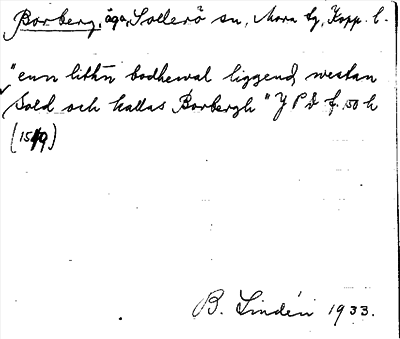 Borberg, äga, Sollerö sn, Mora tg, Kopp. l.
"enn lithn bodhewal liggend, westan
Sold och kallas Borbergh" Y P D f. 50 h
(1549)
B. Lindén 1933.